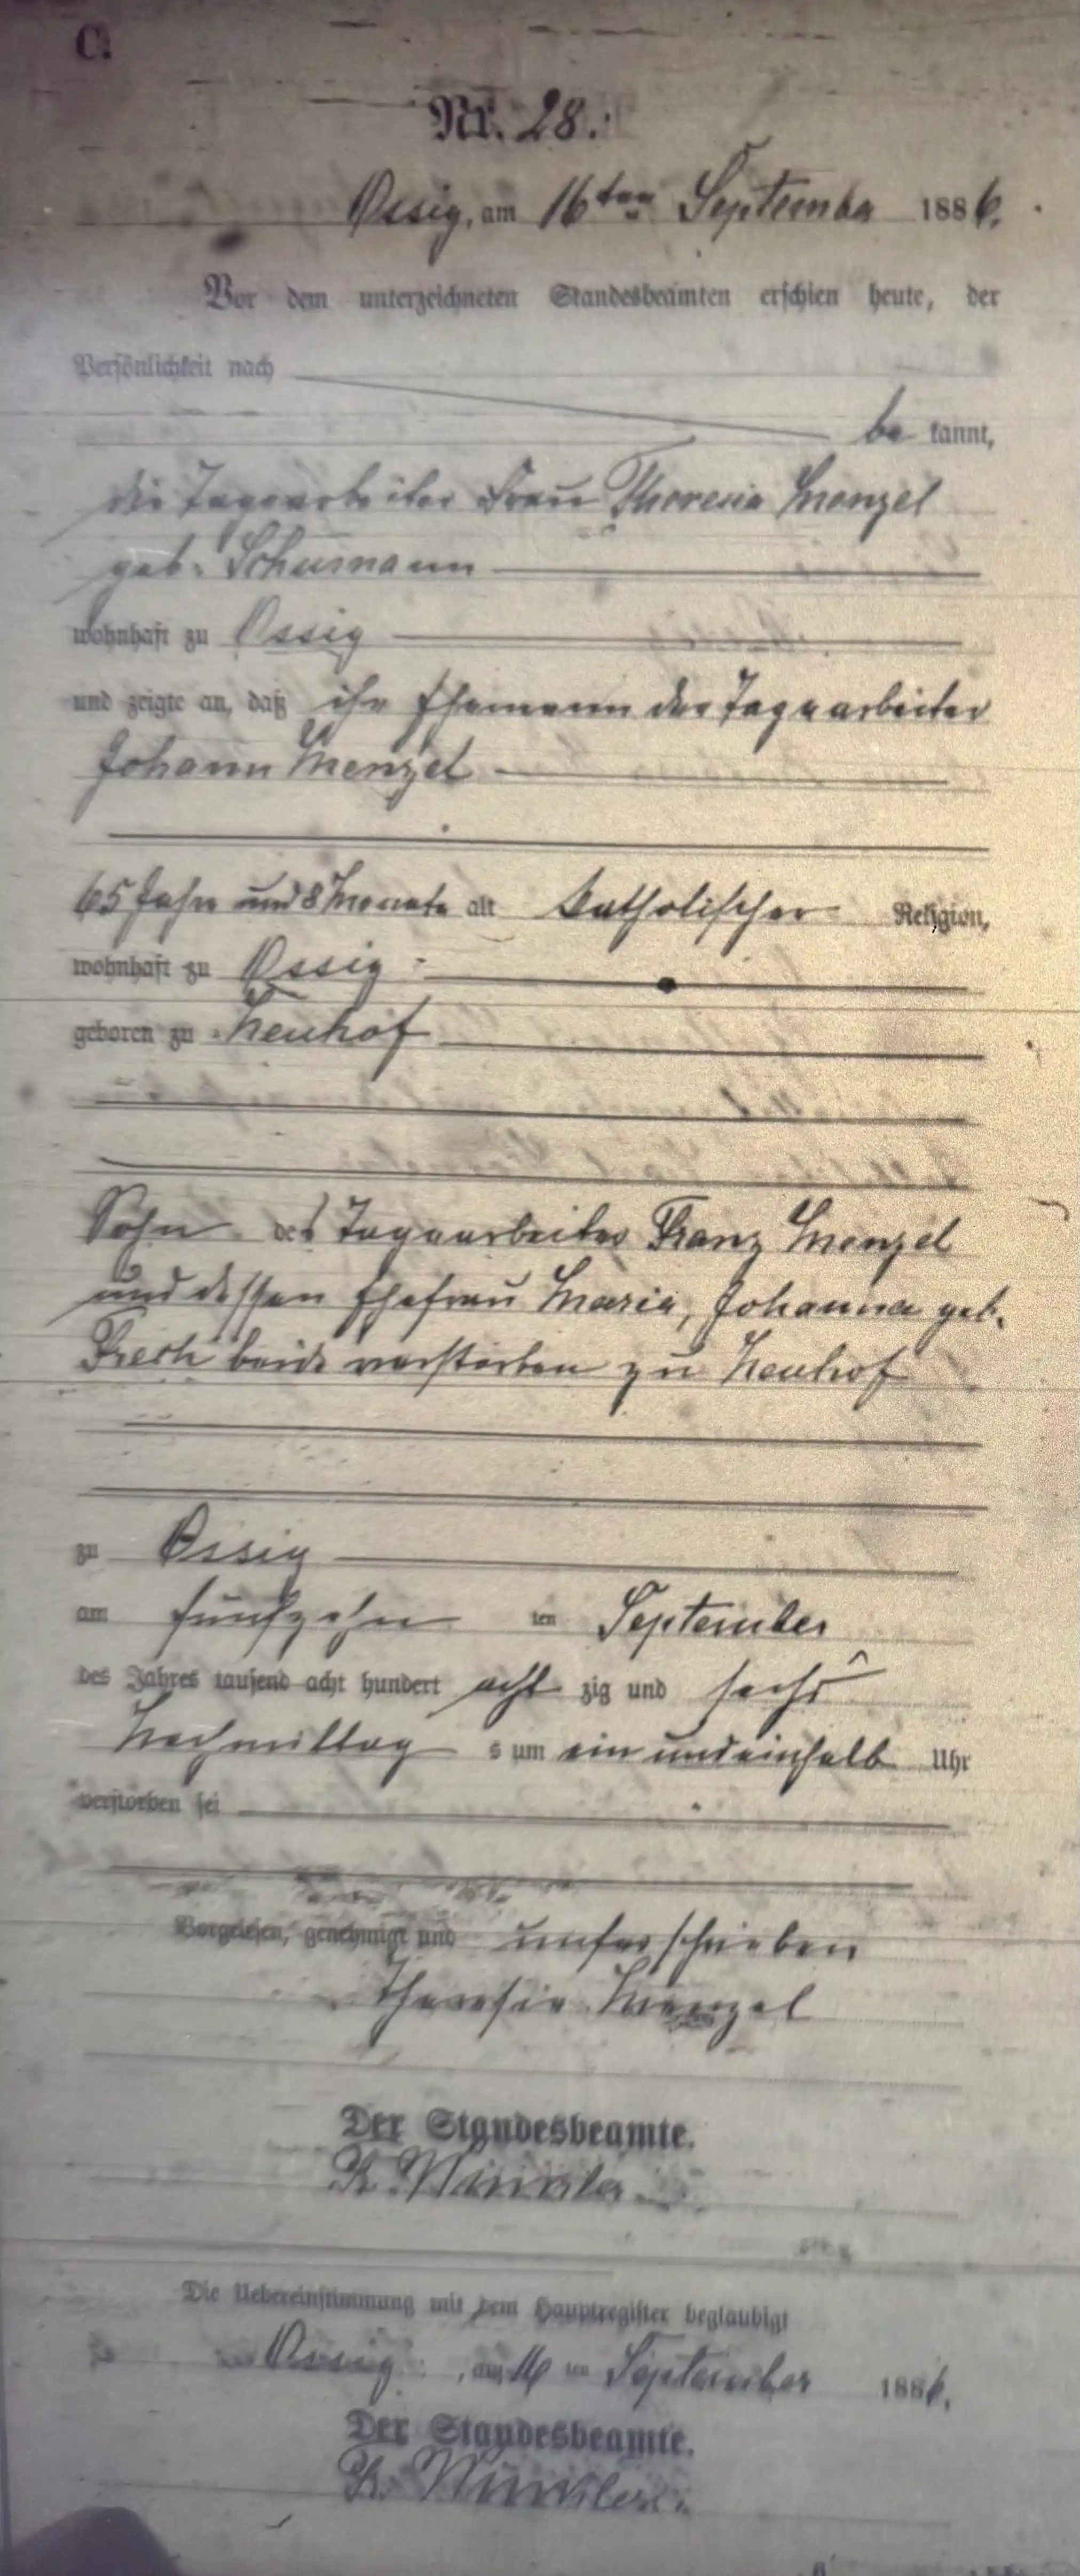 C.
Nr. 28.
Ossig, am 16ten September 1886.
Vor dem unterzeichneten Standesbeamten erschien heute, der
Persönlichkeit nach
be kannt,
die Tagearbeiter Frau Theresia Menzel
geb. Schumann
wohnhaft zu Ossig
und zeigte an, daß ihr Ehemann der Tagearbeiter
Johann Menzel
65 Jahr und 8 Monate alt katholischer Religion,
wohnhaft zu Ossig
geboren zu Neuhof
Sohn des Tagearbeiter Franz Menzel
und dessen Ehefrau Maria, Johanna geb.
beide verstorben zu Neuhof
zu Ossig
am fünfzehn ten September
des Jahres tausend acht hundert acht zig und sechs
Nachmittag s um ein und einhalb Uhr
verstorben sei
Vorgelesen, genehmigt und unterschrieben
Theresia Menzel
Der Standesbeamte.
Winkler
Die Uebereinstimmung mit dem Hauptregister beglaubigt
Ossig, am 16 ten September 1886.
Der Standesbeamte.
Winkler